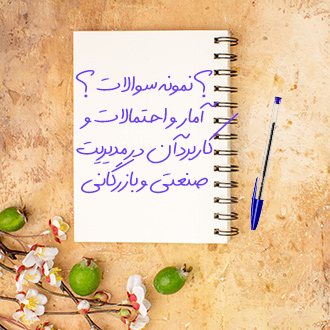 ؟ نمونه سوالات ؟
آمار و احتمالات و
کاربردآن در مدیریت
صنعتی و بازرگانی